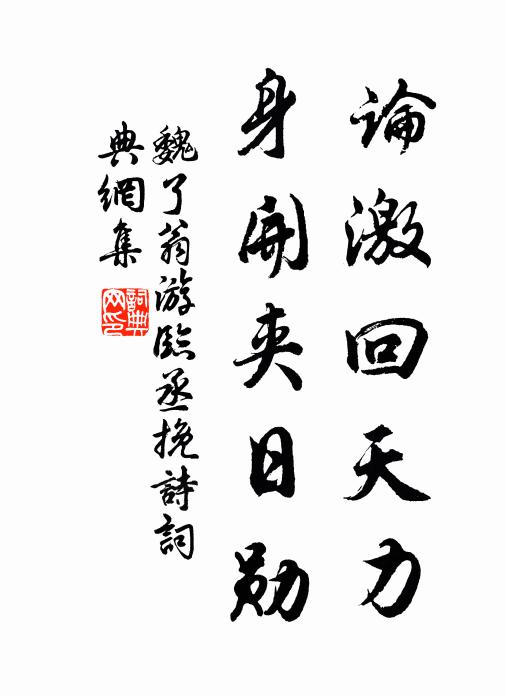 論激回天力
身開夾日勛
魏了翁游臨丞挽詩詞
典網集
詞典
网印